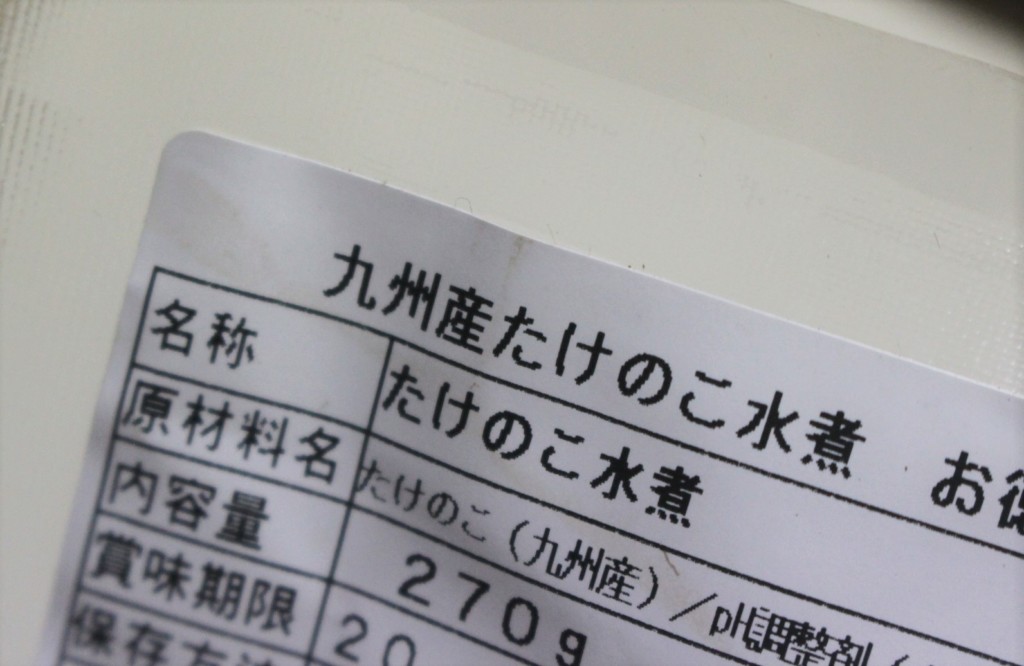 九州産たけのこ水煮 お徳
名称 たけのこ水煮
原材料名 たけのこ(九州産)/pH調整剤/
内容量 270g
賞味期限 20
保存方法